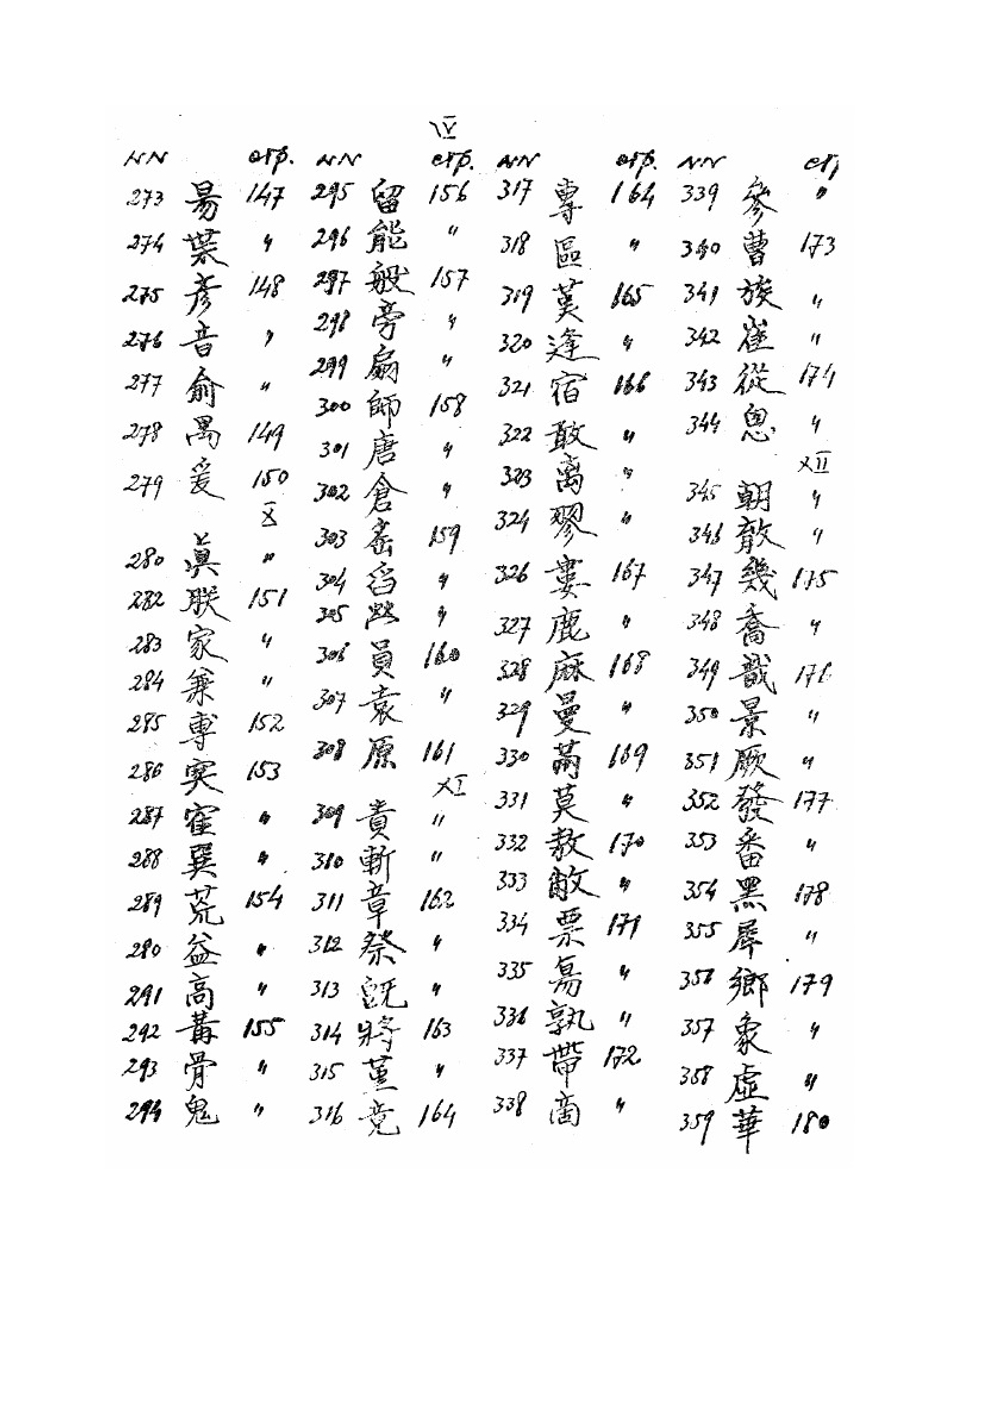 IV
NN стр.
273 昜 147
274 枼 〃
275 彥 148
276 音 〃
277 俞 〃
278 禺 149
279 爰 150
X
280 眞 〃
282 朕 151
283 家 〃
284 兼 〃
285 専 152
286 寞 153
287 隺 〃
288 巽 〃
289 荒 154
290 益 〃
291 高 〃
292 冓 155
293 骨 〃
294 鬼 〃
NN стр.
295 留 156
296 能 〃
297 般 157
298 旁 〃
299 扇 〃
300 師 158
301 唐 〃
302 倉 〃
303 䍃 159
304 舀 〃
305 〃
306 員 160
307 袁 〃
308 原 161
XI
309 責 〃
310 斬 〃
311 章 162
312 祭 〃
313 旣 〃
314 將 163
315 堇 〃
316 竟 164
NN стр.
317 專 164
318 區 〃
319 𦰩 165
320 逢 〃
321 宿 166
322 敢 〃
323 离 〃
324 翏 〃
326 婁 167
327 鹿 〃
328 麻 168
329 曼 〃
330 㒼 169
331 莫 〃
332 敖 170
333 敝 〃
334 票 171
335 昜 〃
336 孰 〃
337 帶 172
338 啇 〃
NN ст
339 參 〃
340 曹 173
341 族 〃
342 崔 〃
343 從 174
344 悤 〃
XII
345 朝 〃
346 散 〃
347 幾 175
348 喬 〃
349 戠 176
350 景 〃
351 厥 〃
352 發 177
353 番 〃
354 黑 178
355 犀 〃
356 鄉 179
357 象 〃
358 虛 〃
359 華 180